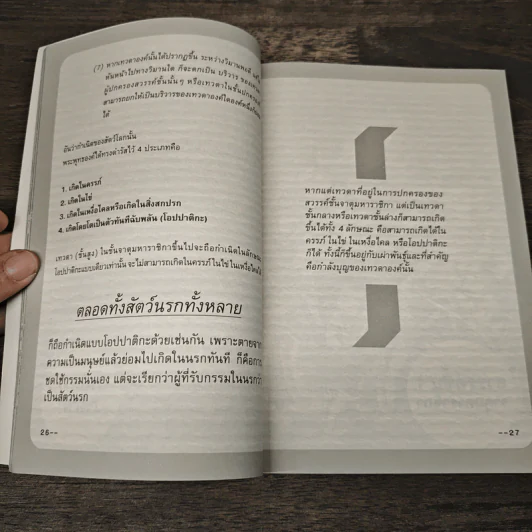 (7) หากเทวดาองค์นั้นได้ปรากฏขึ้น ระหว่างวิมานพอดี
หันหน้าไปทางวิมานใด ก็จะตกเป็น บริวาร ของ
ผู้ปกครองสวรรค์ชั้นนั้นๆ หรือเทวดาในชั้นปกครอง
สามารถยกให้เป็นบริวารของเทวดาองค์ใดองค์หนึ่งก็
ได้
อันว่ากำเนิดของสัตว์โลกนั้น
พระพุทธองค์ได้ทรงดำรัสไว้ 4 ประเภทคือ
1. เกิดในครรภ์
2. เกิดในไข่
3. เกิดในเหงื่อไคลหรือเกิดในสิ่งสกปรก
4. เกิดโดยโตเป็นตัวทันทีฉับพลัน (โอปปาติกะ)
เทวดา (ชั้นสูง) ในชั้นจาตุมหาราชิกาขึ้นไปจะถือกำเนิดใน
โอปปาติกะแบบเดียวเท่านั้น จะไม่สามารถเกิดในครรภ์ ในไข่ ในเหงื่อไคล
ตลอดทั้งสัตว์นรกทั้งหลาย
ก็ถือกำเนิดแบบโอปปาติกะด้วยเช่นกัน เพราะตายจาก
ความเป็นมนุษย์แล้วย่อมไปเกิดในนรกทันที ก็คือการ
ชดใช้กรรมนั่นเอง แต่จะเรียกว่าผู้ที่รับกรรมในนรกว่า
เป็นสัตว์นรก
26--
หากแต่เทวดาที่อยู่ในการปกครองของ
สวรรค์ชั้นจาตุมหาราชิกา แต่เป็นเทวดา
ชั้นกลางหรือเทวดาชั้นล่างก็สามารถเกิด
ขึ้นได้ทั้ง 4 ลักษณะ คือสามารถเกิดได้ใน
ครรภ์ ในไข่ ในเหงื่อไคล หรือโอปปาติกะ
ก็ได้ ทั้งนี้ก็ขึ้นอยู่กับเผ่าพันธุ์และที่สำคัญ
คือกำลังบุญของเทวดาองค์นั้น
--27